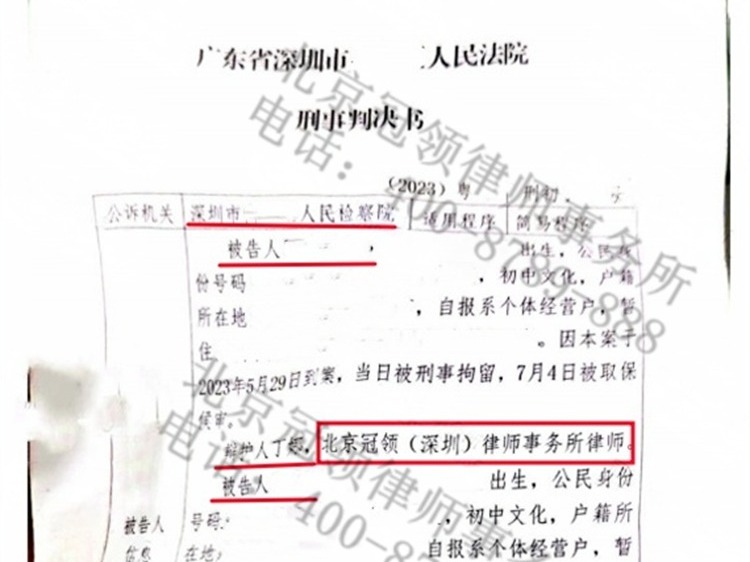 广东省深圳市 人民法院
刑事判决书
(2023)粤 刑初 号
公诉机关 深圳市 人民检察院 适用程序 简易程序
被告人 , 出生,公民身
份号码 ,初中文化,户籍
所在地 ,自报系个体经营户,暂
住 。因本案于
2023年5月29日到案,当日被刑事拘留,7月4日被取保
候审。
辩护人丁 ,北京冠领(深圳)律师事务所律师。
被告人 出生,公民身份
被告人 号码: ,初中文化,户籍所
信息 在地: 自报系个体经营户,暂
北京冠领律师事务所
电话:400-8789-888
北京冠领律师事务所
电话:400-87